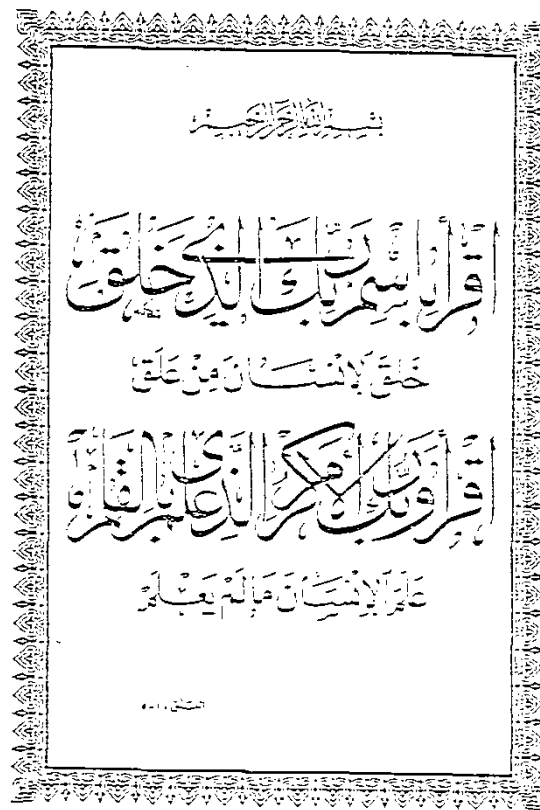 بسم الله الرحمن الرحيم
اقرأ باسم ربك الذي خلق
خلق الإنسان من علق
اقرأ وربك الأكرم الذي علم بالقلم
علم الإنسان ما لم يعلم
العلق ١-٥